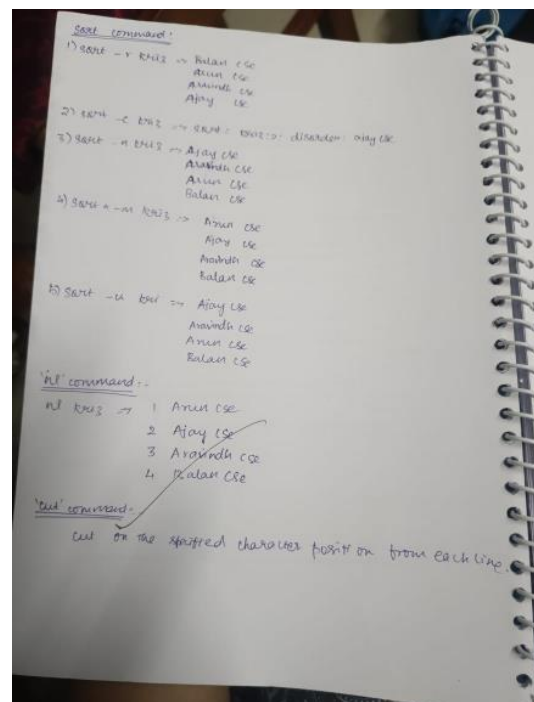 sort command:
1) sort -r kri3 => Balan cse
Arun cse
Aravindh cse
Ajay cse
2) sort -c kri3 => sort: kri3:2: disorder: ajay cse
3) sort -n kri3 => Ajay cse
Aravindh cse
Arun cse
Balan cse
4) sort -m kri3 => Arun cse
Ajay cse
Aravindh cse
Balan cse
5) sort -u kri => Ajay cse
Aravindh cse
Arun cse
Balan cse
'nl' command:-
nl kri3 => 1 Arun cse
2 Ajay cse
3 Aravindh cse
4 Balan cse
'cut' command:-
cut on the spified character position from each line.